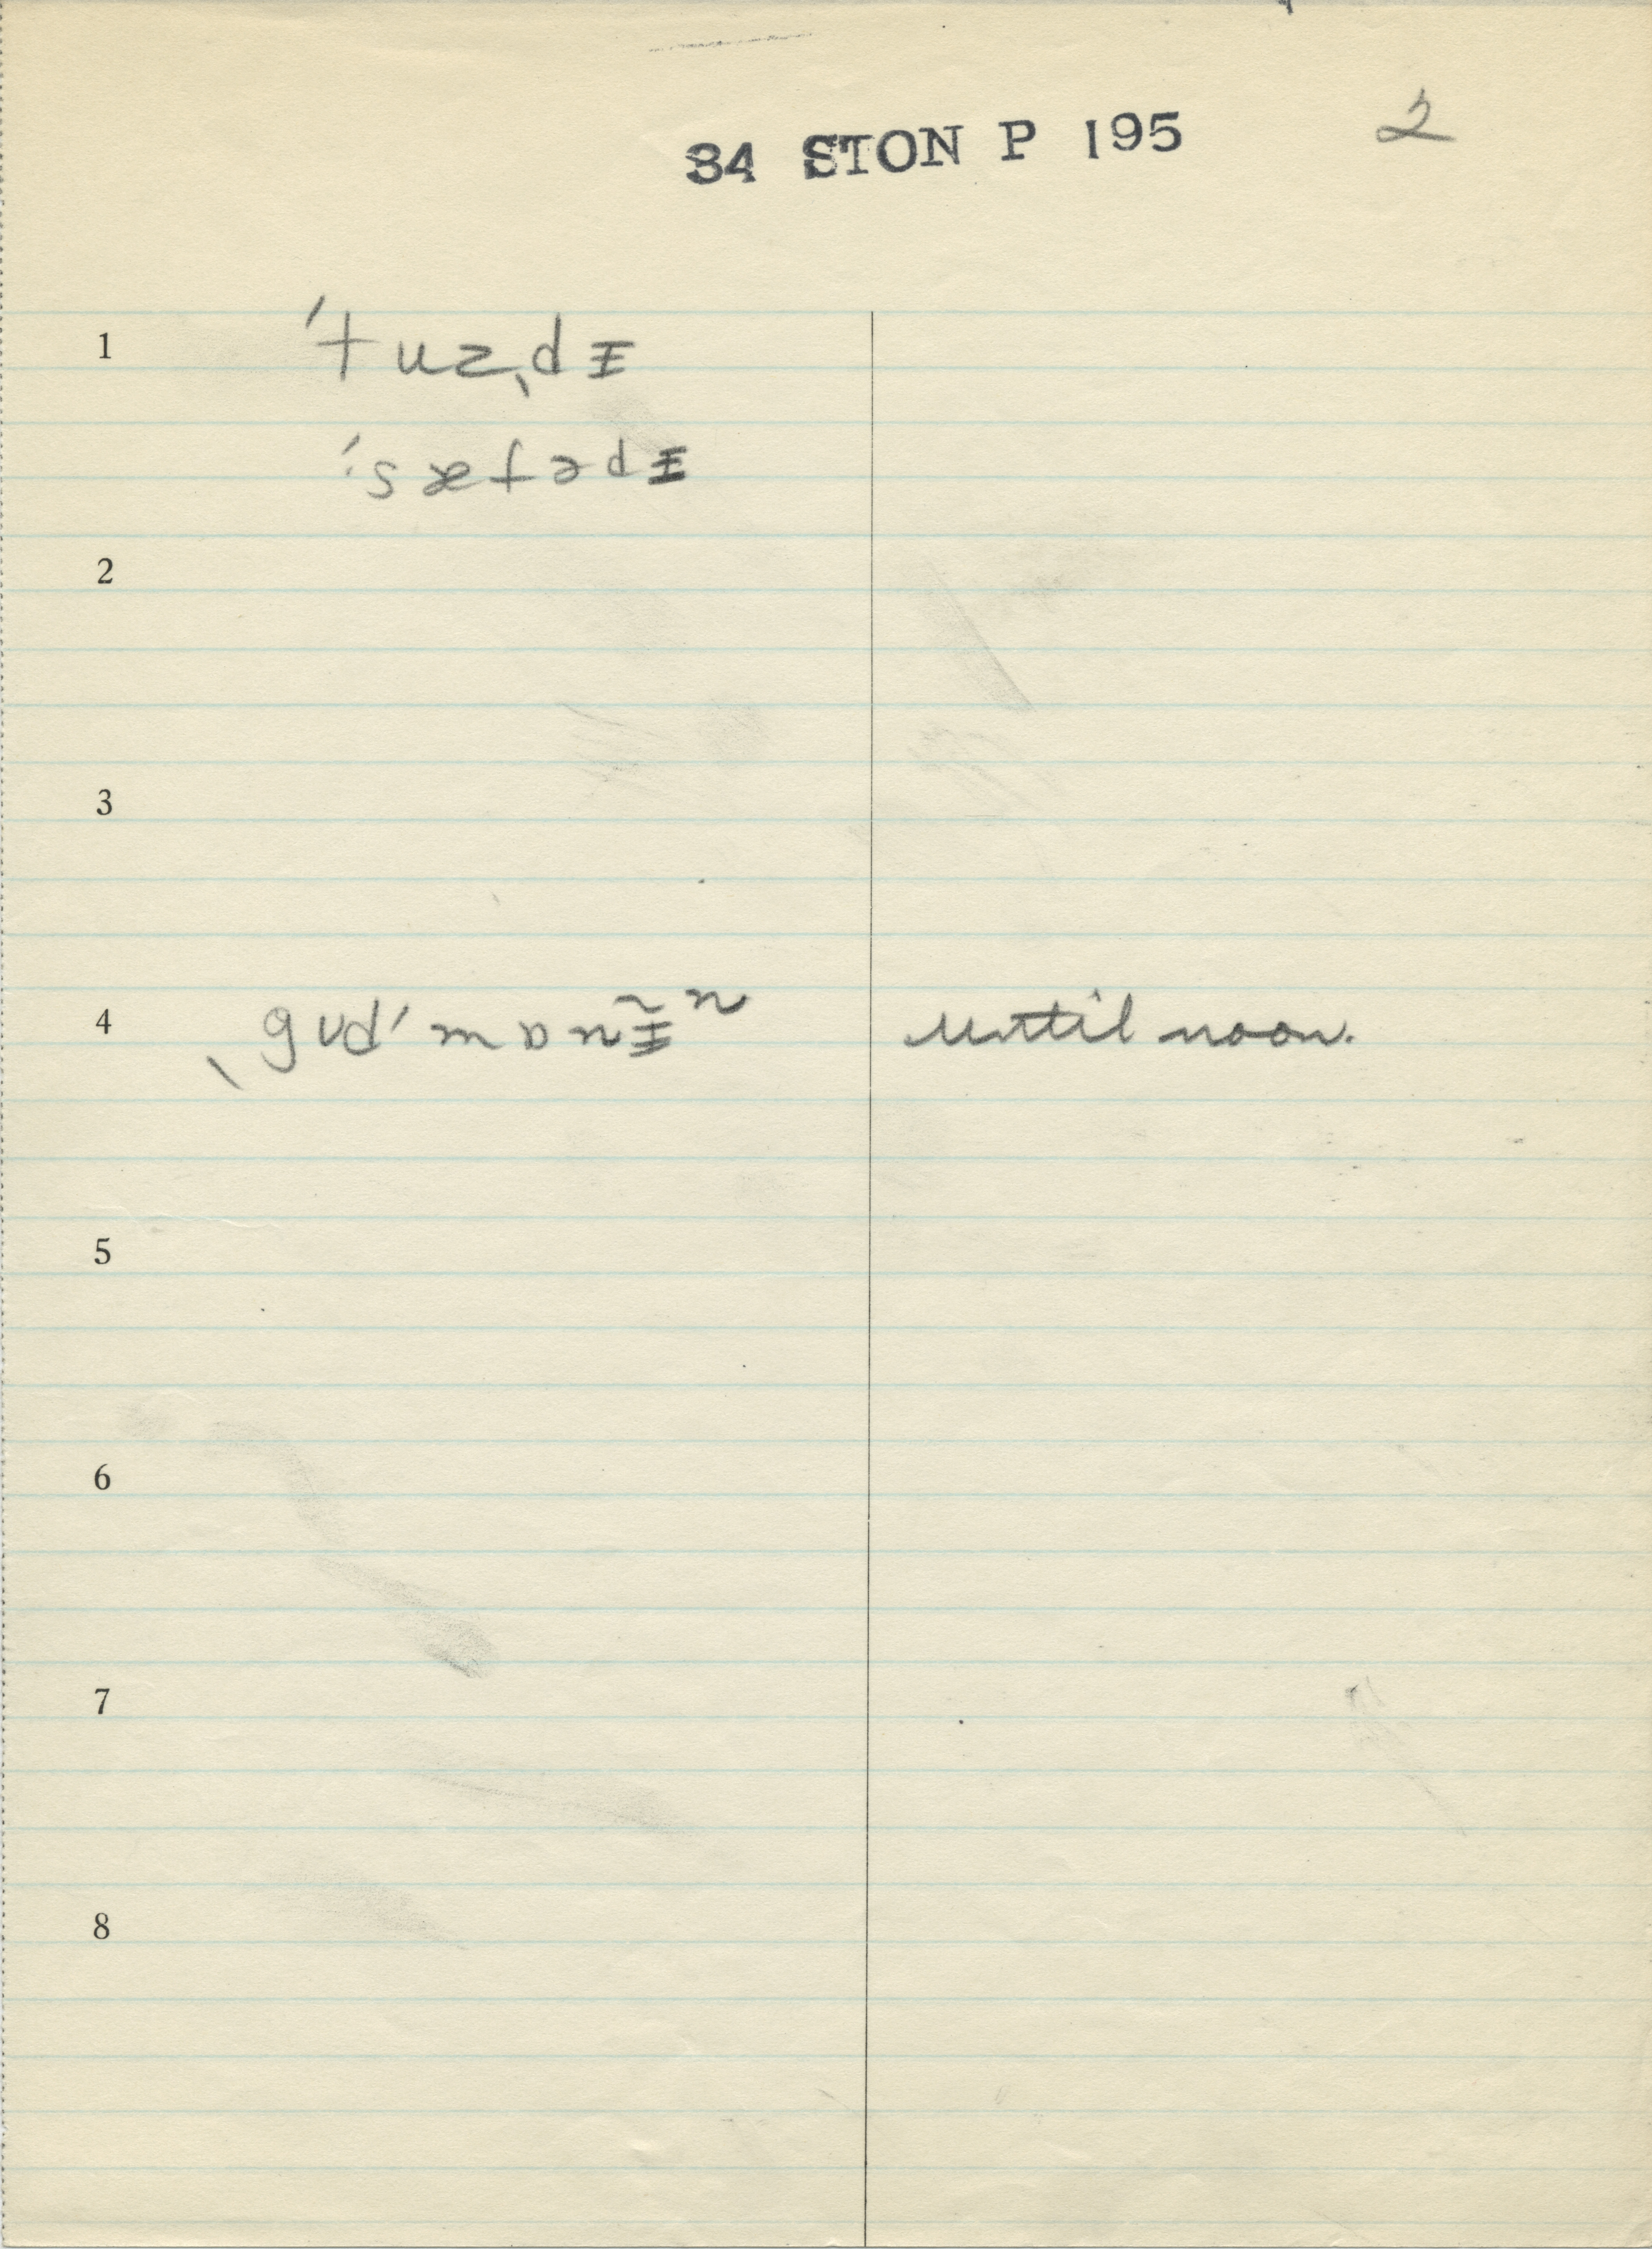 34 STON P 195 2
1 ˈtuzˌdᵻ
ˈsæfədᵻ
2
3
4 ˌgʊdˈmɒnᵻ̃ⁿ until noon.
5
6
7
8